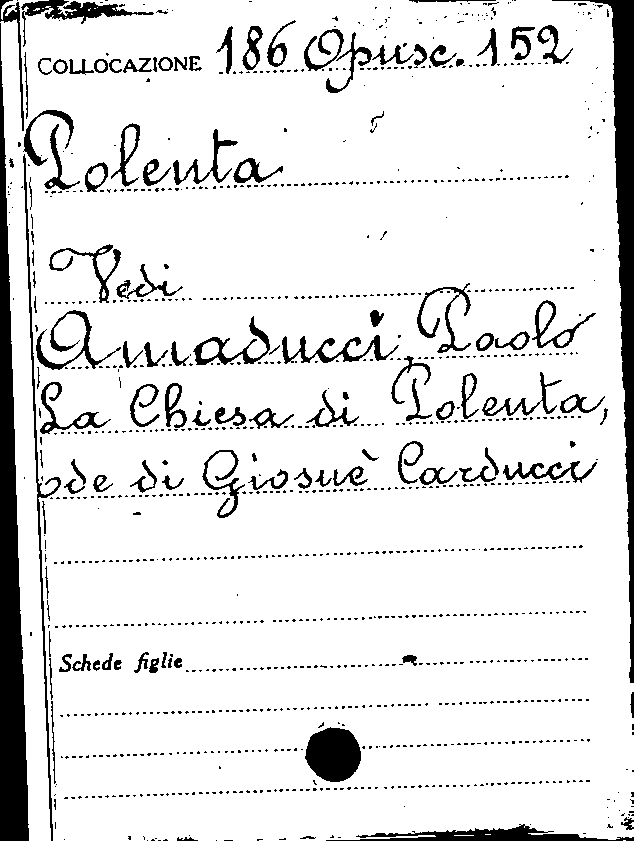 COLLOCAZIONE 186 Opusc. 152
Polenta
Vedi
Amaducci, Paolo
La Chiesa di Polenta,
ode di Giosuè Carducci
Schede figlie